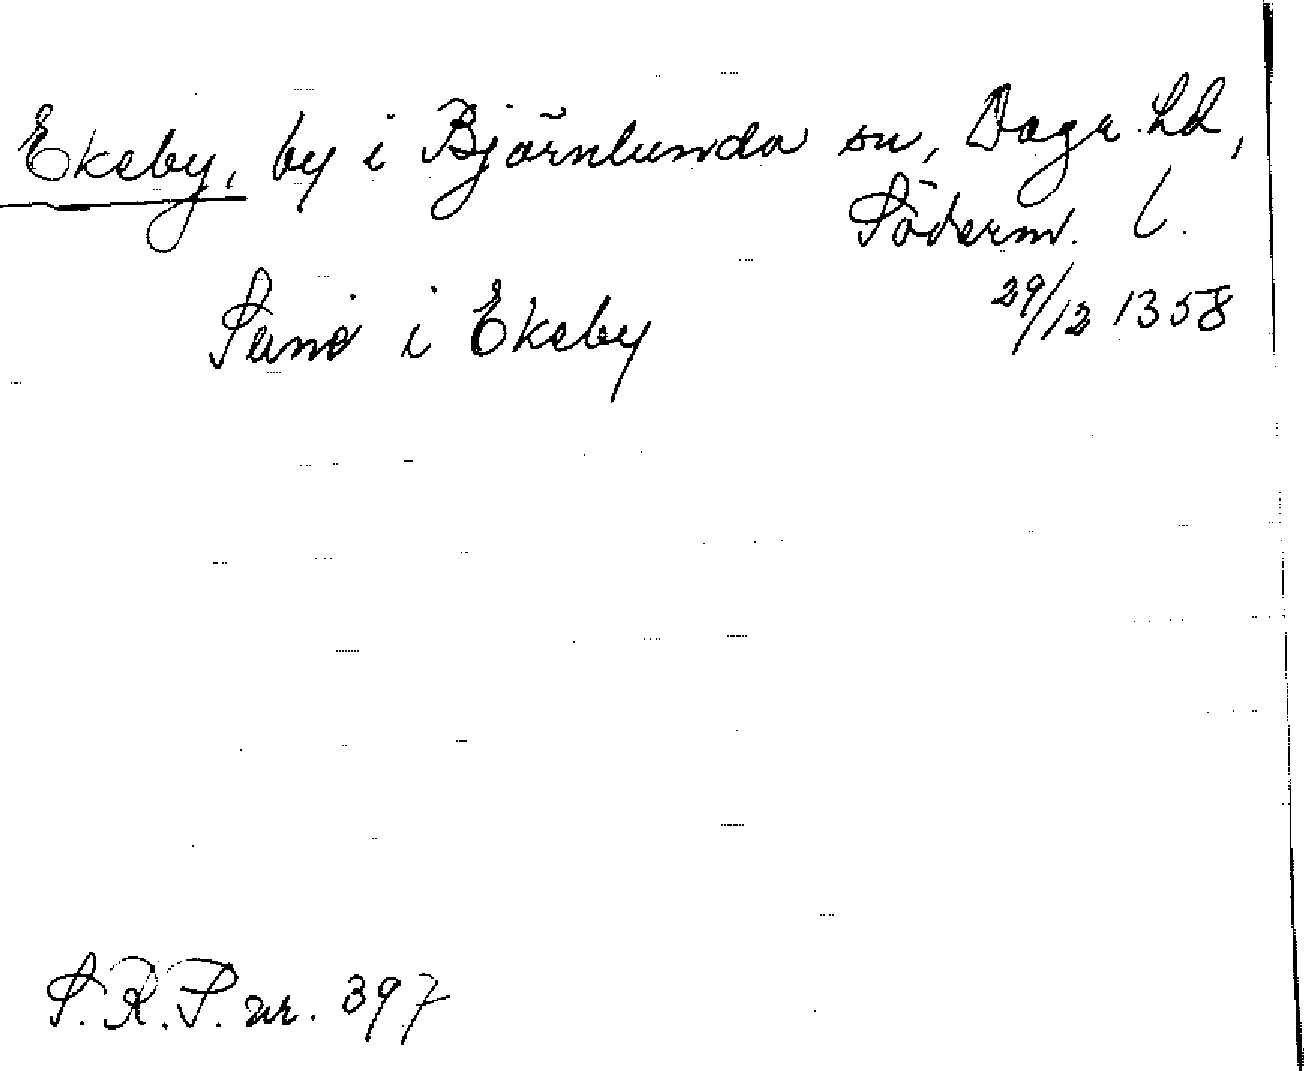 Ekeby, by i Björnlunda sn, Daga hd,
Söderm. l.
29/12 1358
Sune i Ekeby
S.R.P. nr. 397